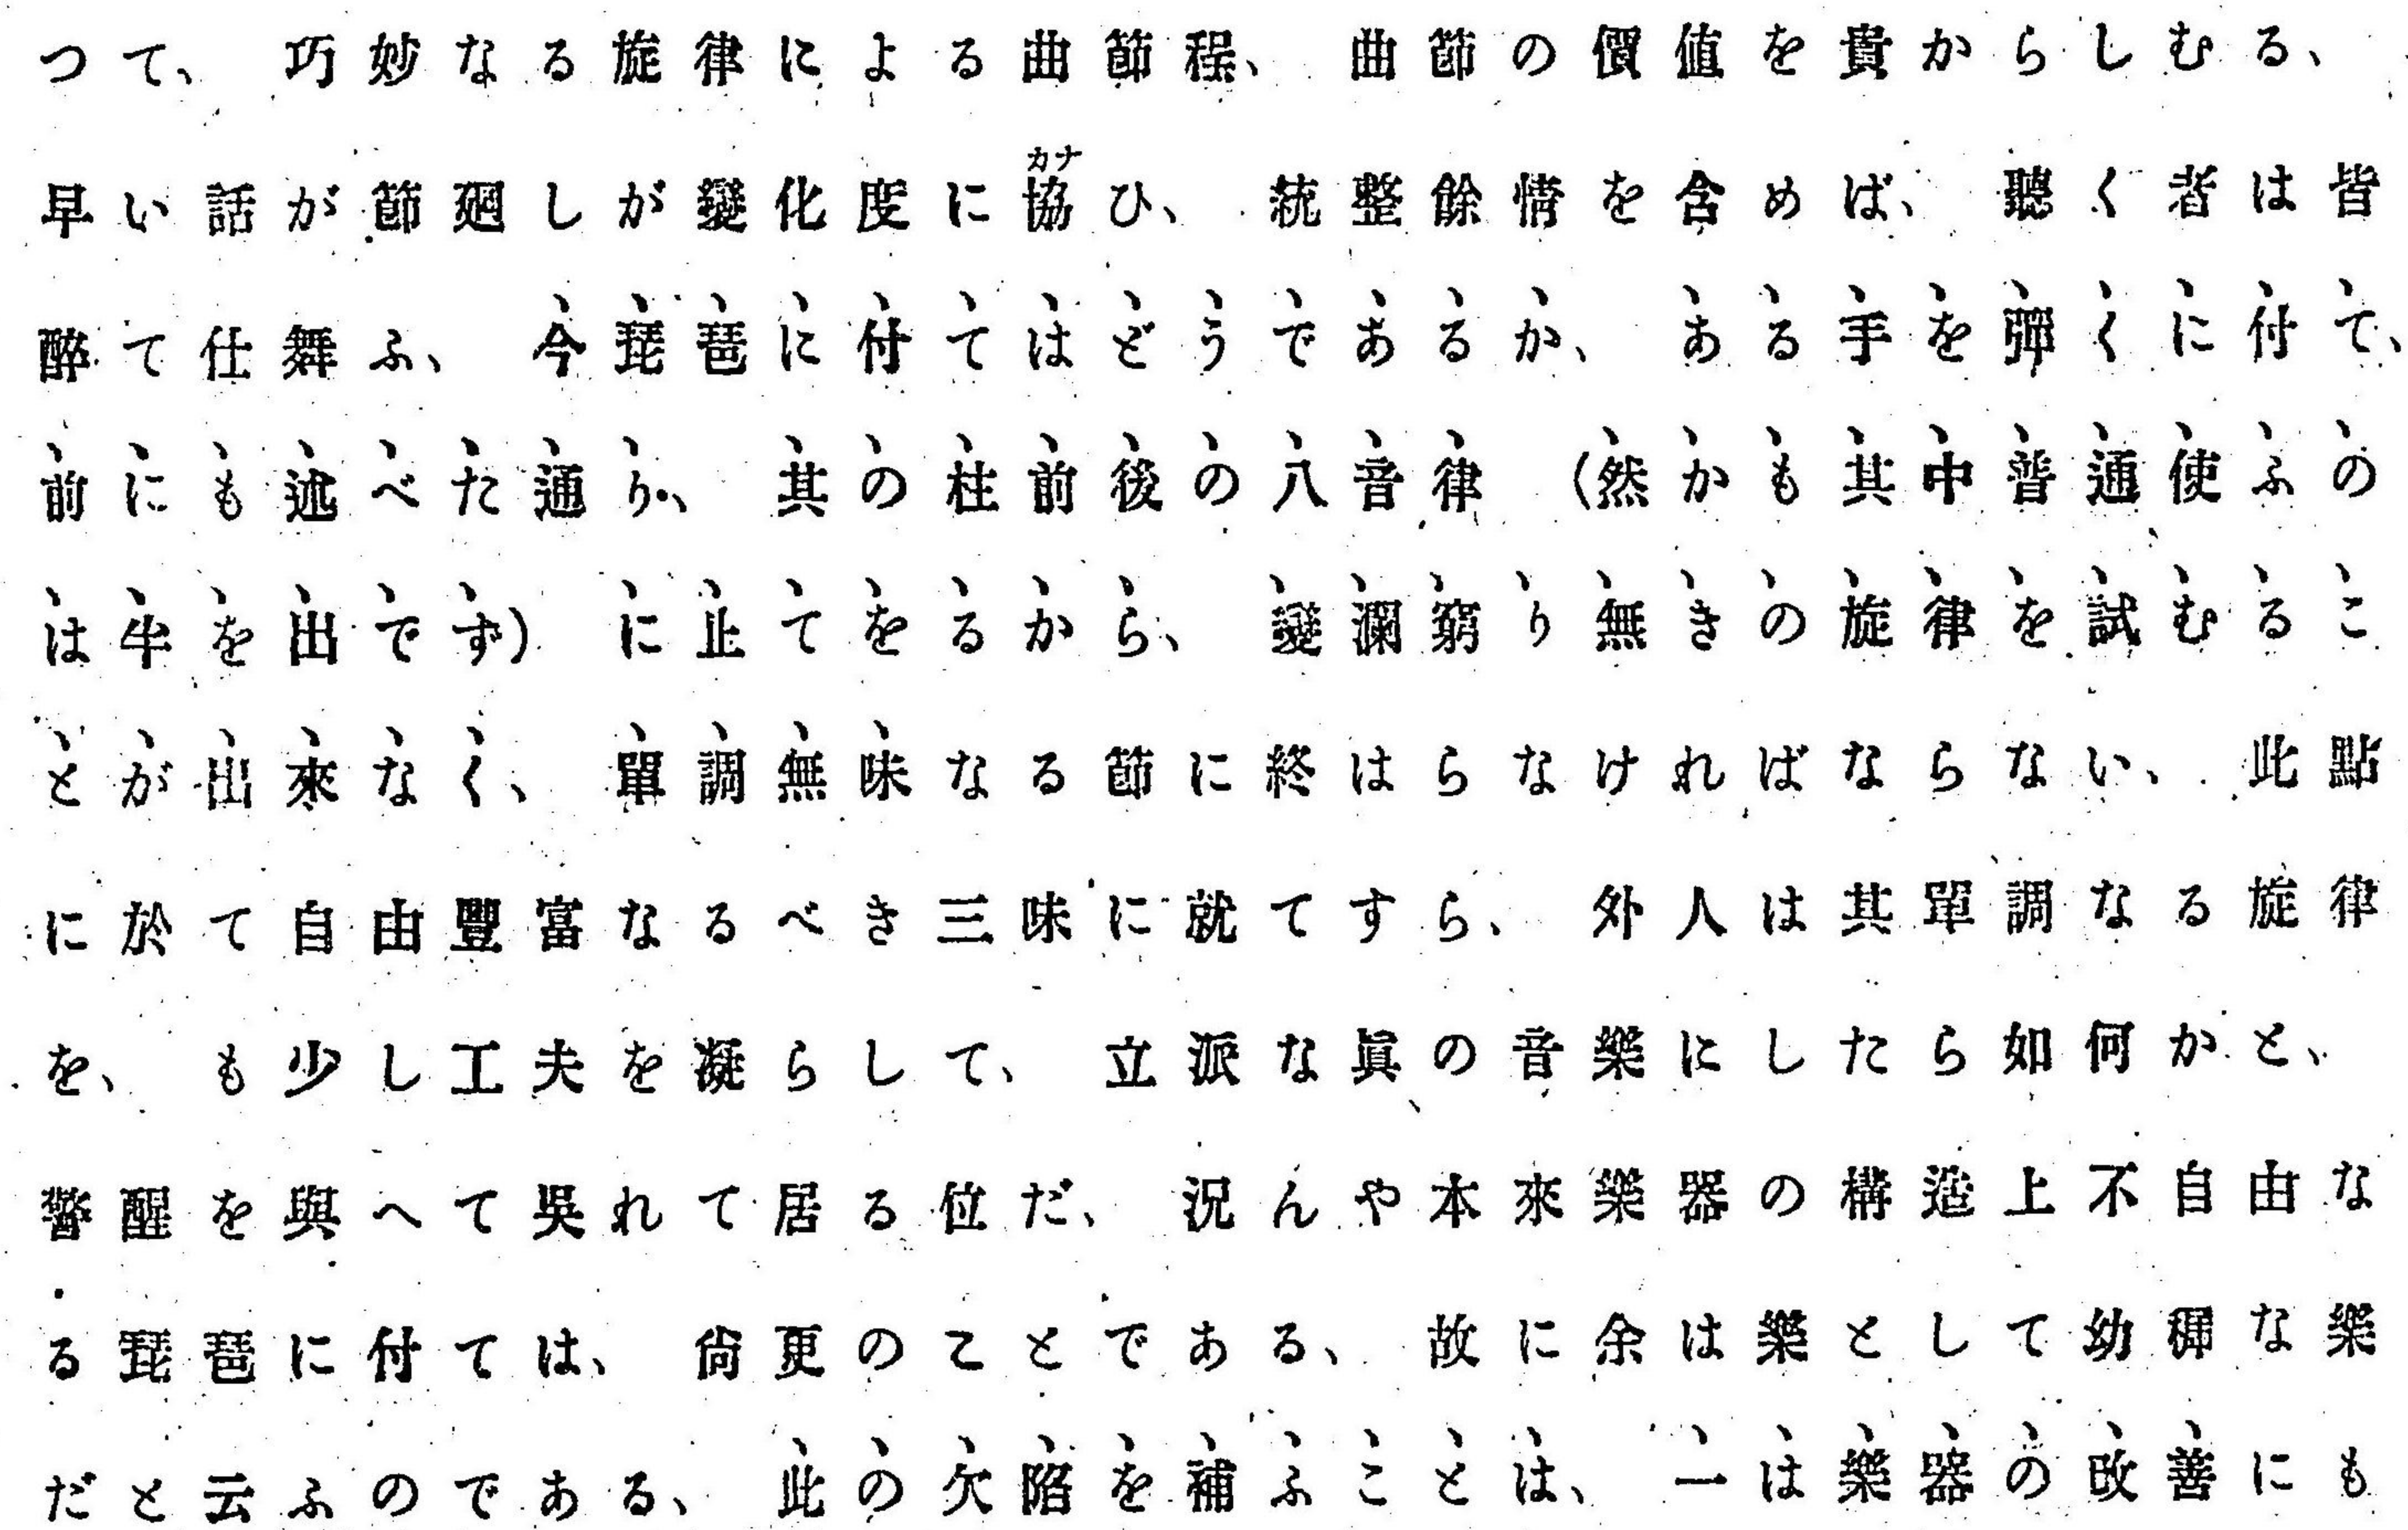 つて、巧妙なる旋律による曲節程、曲節の價値を貴からしむる、
早い話が節廻しが變化度に協ひ、統整餘情を含めば、聽く者は皆
醉て仕舞ふ、今琵琶に付てはどうであるか、ある手を彈くに付て、
前にも述べた通り、其の柱前後の八音律(然かも其中普通使ふの
は半を出でず)に止てをるから、變瀾窮り無きの旋律を試むるこ
とが出來なく、單調無味なる節に終はらなければならない、此點
に於て自由豐富なるべき三味に就てすら、外人は其單調なる旋律
を、も少し工夫を凝らして、立派な眞の音樂にしたら如何かと、
警醒を與へて吳れて居る位だ、況んや本來樂器の構造上不自由な
る琵琶に付ては、尙更のことである、故に余は樂として幼穉な樂
だと云ふのである、此の欠陷を補ふことは、一は樂器の改善にも